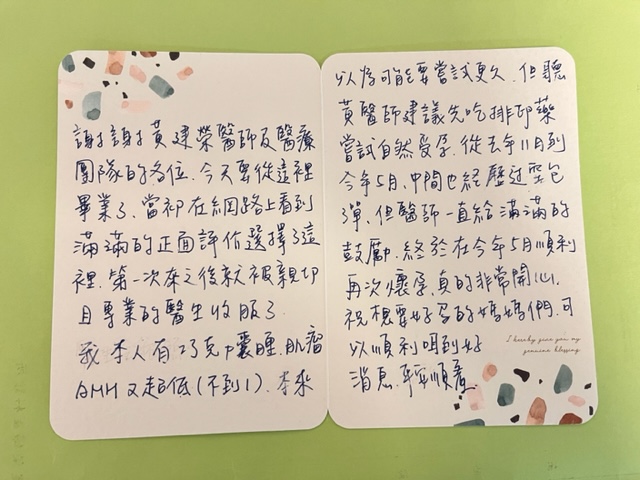 謝謝黃建榮醫師及醫療
團隊的各位,今天要從這裡
畢業了,當初在網路上看到
滿滿的正面評價選擇了這
裡,第一次來之後就被親切
且專業的醫生收服了
我本人有巧克力囊腫,肌瘤
AMH又超低(不到1),本來
以為可能要嘗試更久,但聽
黃醫師建議先吃排卵藥
嘗試自然受孕,從去年11月到
今年5月,中間也經歷過空包
彈,但醫師一直給滿滿的
鼓勵,終於在今年5月順利
再次懷孕,真的非常開心,
祝想要好孕的媽媽們,可
以順利咱到好
消息,平安順產
I hereby give you my
genuine blessing.